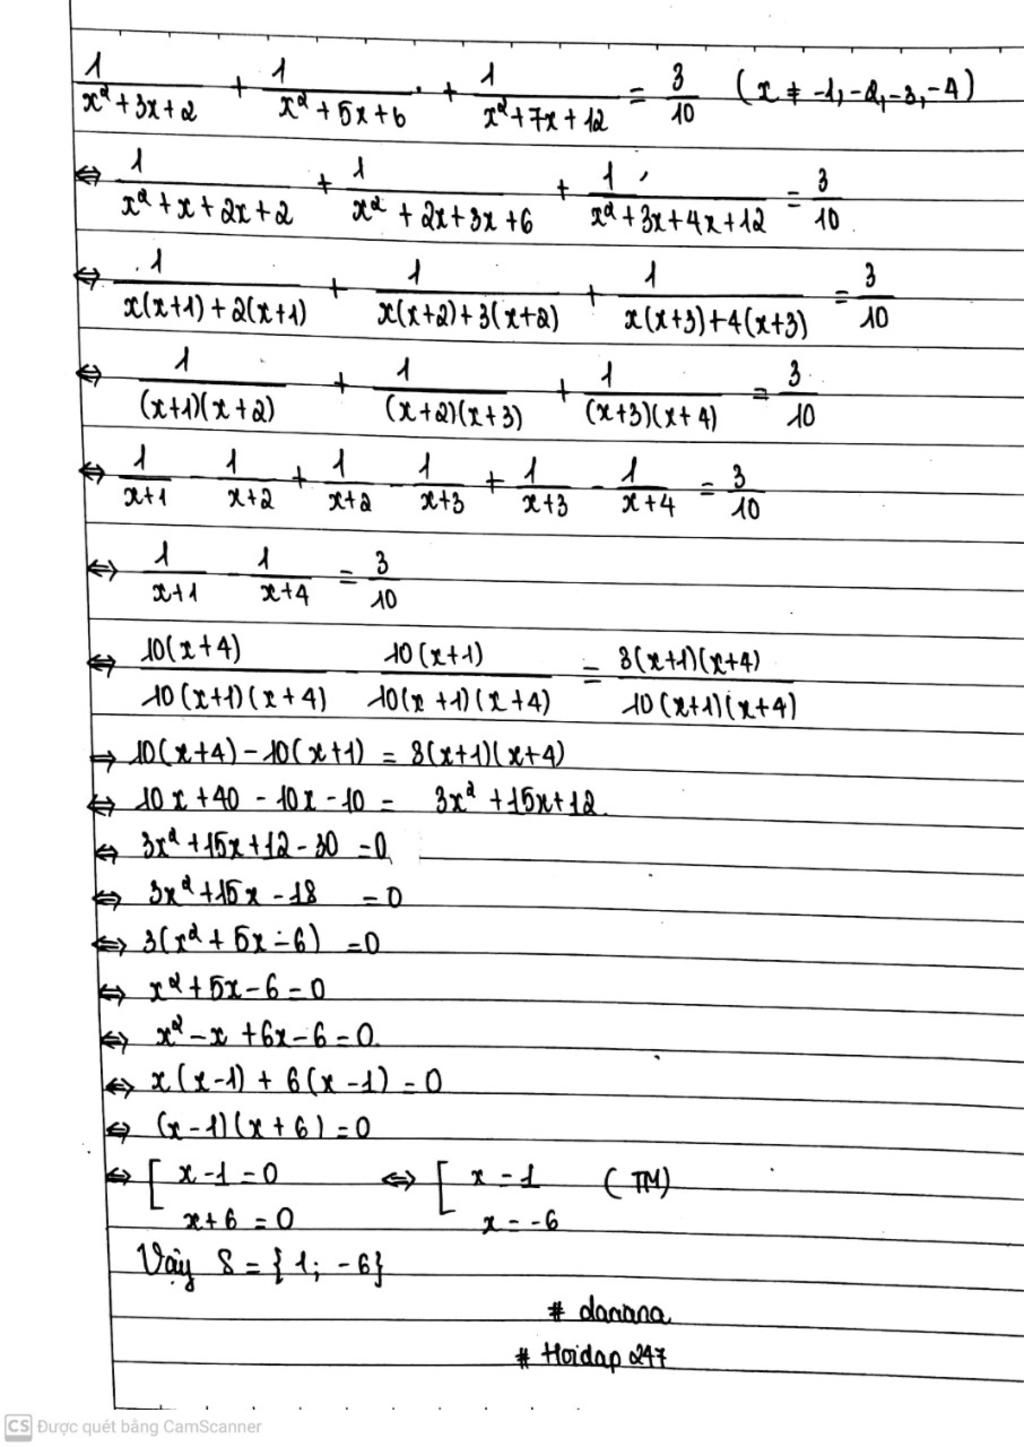 1/(x²+3x+2) + 1/(x²+5x+6) + 1/(x²+7x+12) = 3/10 (x ≠ -1,-2,-3,-4)
⇔ 1/(x²+x+2x+2) + 1/(x²+2x+3x+6) + 1/(x²+3x+4x+12) = 3/10
⇔ 1/(x(x+1)+2(x+1)) + 1/(x(x+2)+3(x+2)) + 1/(x(x+3)+4(x+3)) = 3/10
⇔ 1/((x+1)(x+2)) + 1/((x+2)(x+3)) + 1/((x+3)(x+4)) = 3/10
⇔ 1/(x+1) - 1/(x+2) + 1/(x+2) - 1/(x+3) + 1/(x+3) - 1/(x+4) = 3/10
⇔ 1/(x+1) - 1/(x+4) = 3/10
⇔ 10(x+4)/(10(x+1)(x+4)) - 10(x+1)/(10(x+1)(x+4)) = 3(x+1)(x+4)/(10(x+1)(x+4))
⇒ 10(x+4) - 10(x+1) = 3(x+1)(x+4)
⇔ 10x+40 - 10x - 10 = 3x²+15x+12
⇔ 3x²+15x+12-30 = 0
⇔ 3x²+15x-18 = 0
⇔ 3(x²+5x-6) = 0
⇔ x²+5x-6=0
⇔ x²-x+6x-6=0
⇔ x(x-1)+6(x-1)=0
⇔ (x-1)(x+6)=0
⇔ [ x-1=0 ⇔ [ x=1 (TM)
x+6=0 x=-6
Vậy S={1; -6}
# danana
# Hoidap247
CS Được quét bằng CamScanner